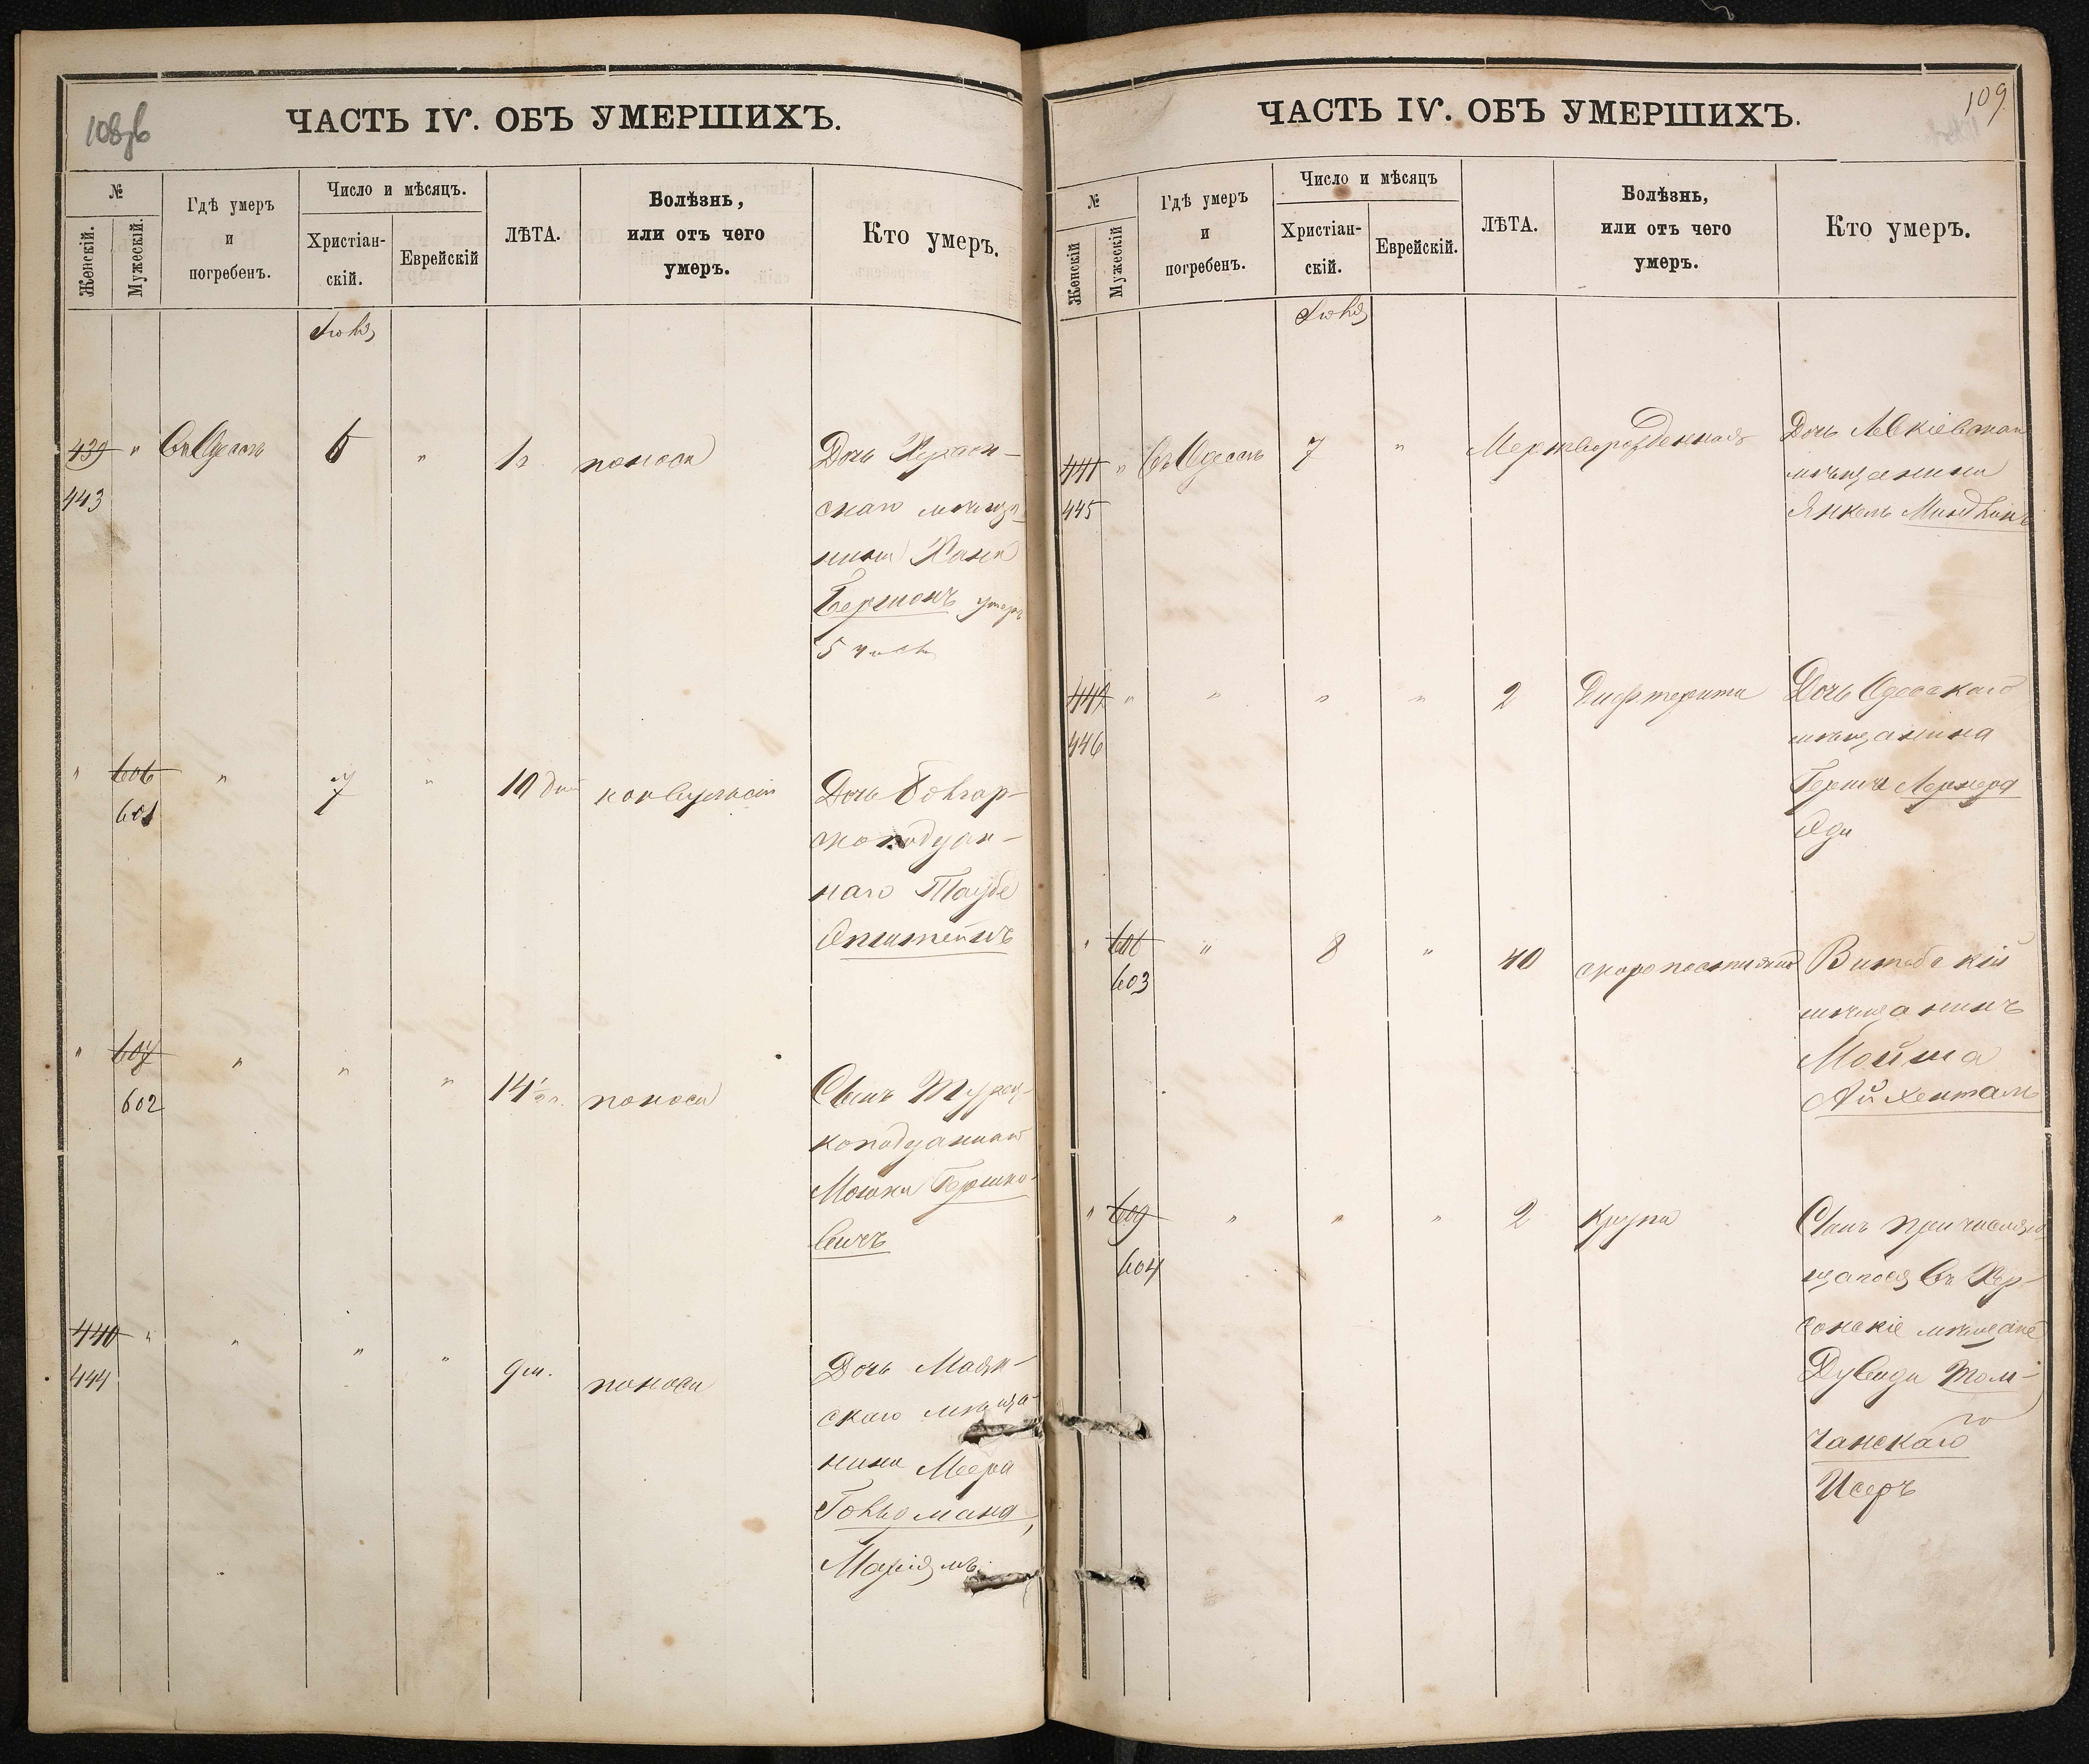 108об
ЧАСТЬ IV. ОБЪ УМЕРШИХЪ.
№
Женскій.
Мужескій.
Гдѣ умеръ
и
погребенъ.
Число и мѣсяцъ.
Христіан-
скій.
Еврейскій
ЛѢТА.
Болѣзнь,
или отъ чего
умеръ.
Кто умеръ.
Іюля
439 " въ Одессѣ 6 " 1 г. поноса Дочь Херсон-
443
скаго мѣща-
нина Хаим
Берманъ умерл
5 числа
" 606 " 7 " 10 дней конвульсіи Дочь Болгар-
601
скоподдан-
наго Таубе
Эпштейнъ
" 607 " " " 14½ г. поноса Сынъ Турец-
602
коподданнаго
Мошки Гершко-
вичъ
440 " " " " 9 м. поноса Дочь Маяк-
444
скаго мѣща-
нина Меера
Гольдмана,
Маріямъ
109
ЧАСТЬ IV. ОБЪ УМЕРШИХЪ.
№
Женскій
Мужескій
Гдѣ умеръ
и
погребенъ.
Число и мѣсяцъ
Христіан-
скій.
Еврейскій.
ЛѢТА.
Болѣзнь,
или отъ чего
умеръ.
Кто умеръ.
Іюля
441 " въ Одессѣ 7 " Мертворожденная Дочь
445
мѣщанина
Янкель
442 " " " " 2 Дифтерита Дочь Одесскаго
446
мѣщанина
Герша Лернера
" 608 " 8 " 40 скоропостижно Витебскій
603
мѣщанинъ
Мойша
Айхенталь
" 609 " " " 2 Крупа Сынъ причисляю-
604
щагося въ Хер-
сонскіе мѣщане
Дувида Том-
чанскаго
Исеръ